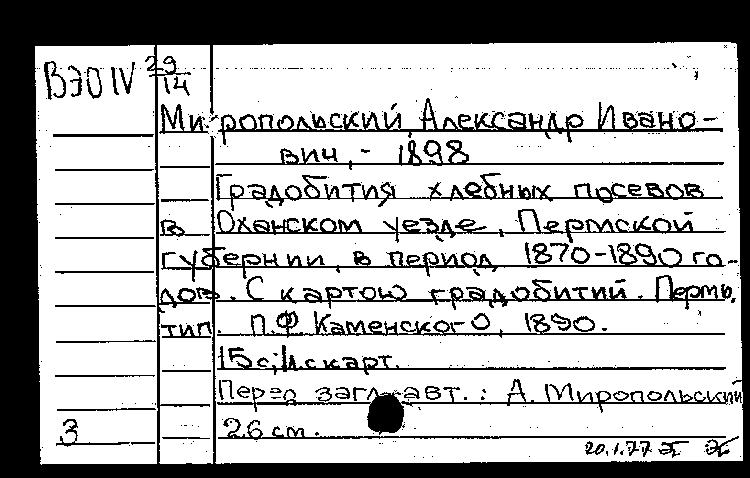 ВЭО IV 29/14
Миропольский, Александр Ивано-
вич, - 1898
Градобития хлебных посевов
в Оханском уезде, Пермской
губернии, в период 1870-1890 го-
дов. С картою градобитий. Пермь,
тип. П.Ф. Каменского, 1890.
15 с; 1 л. карт.
Перед загл. авт.: А. Миропольский
3 26 см.
20.1.77